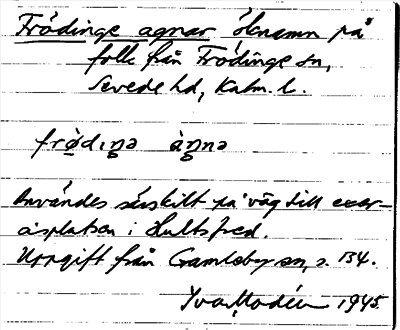 Frödinge agnar öknamn på
folk från Frödinge sn,
Sevede hd, Kalm. l.
frö̀dıŋə àŋnə
Användes särskilt på väg till exer-
cisplatsen i Hultsfred.
Uppgift från Gamleby sn, s. 134.
Ivar Modéer 1945.